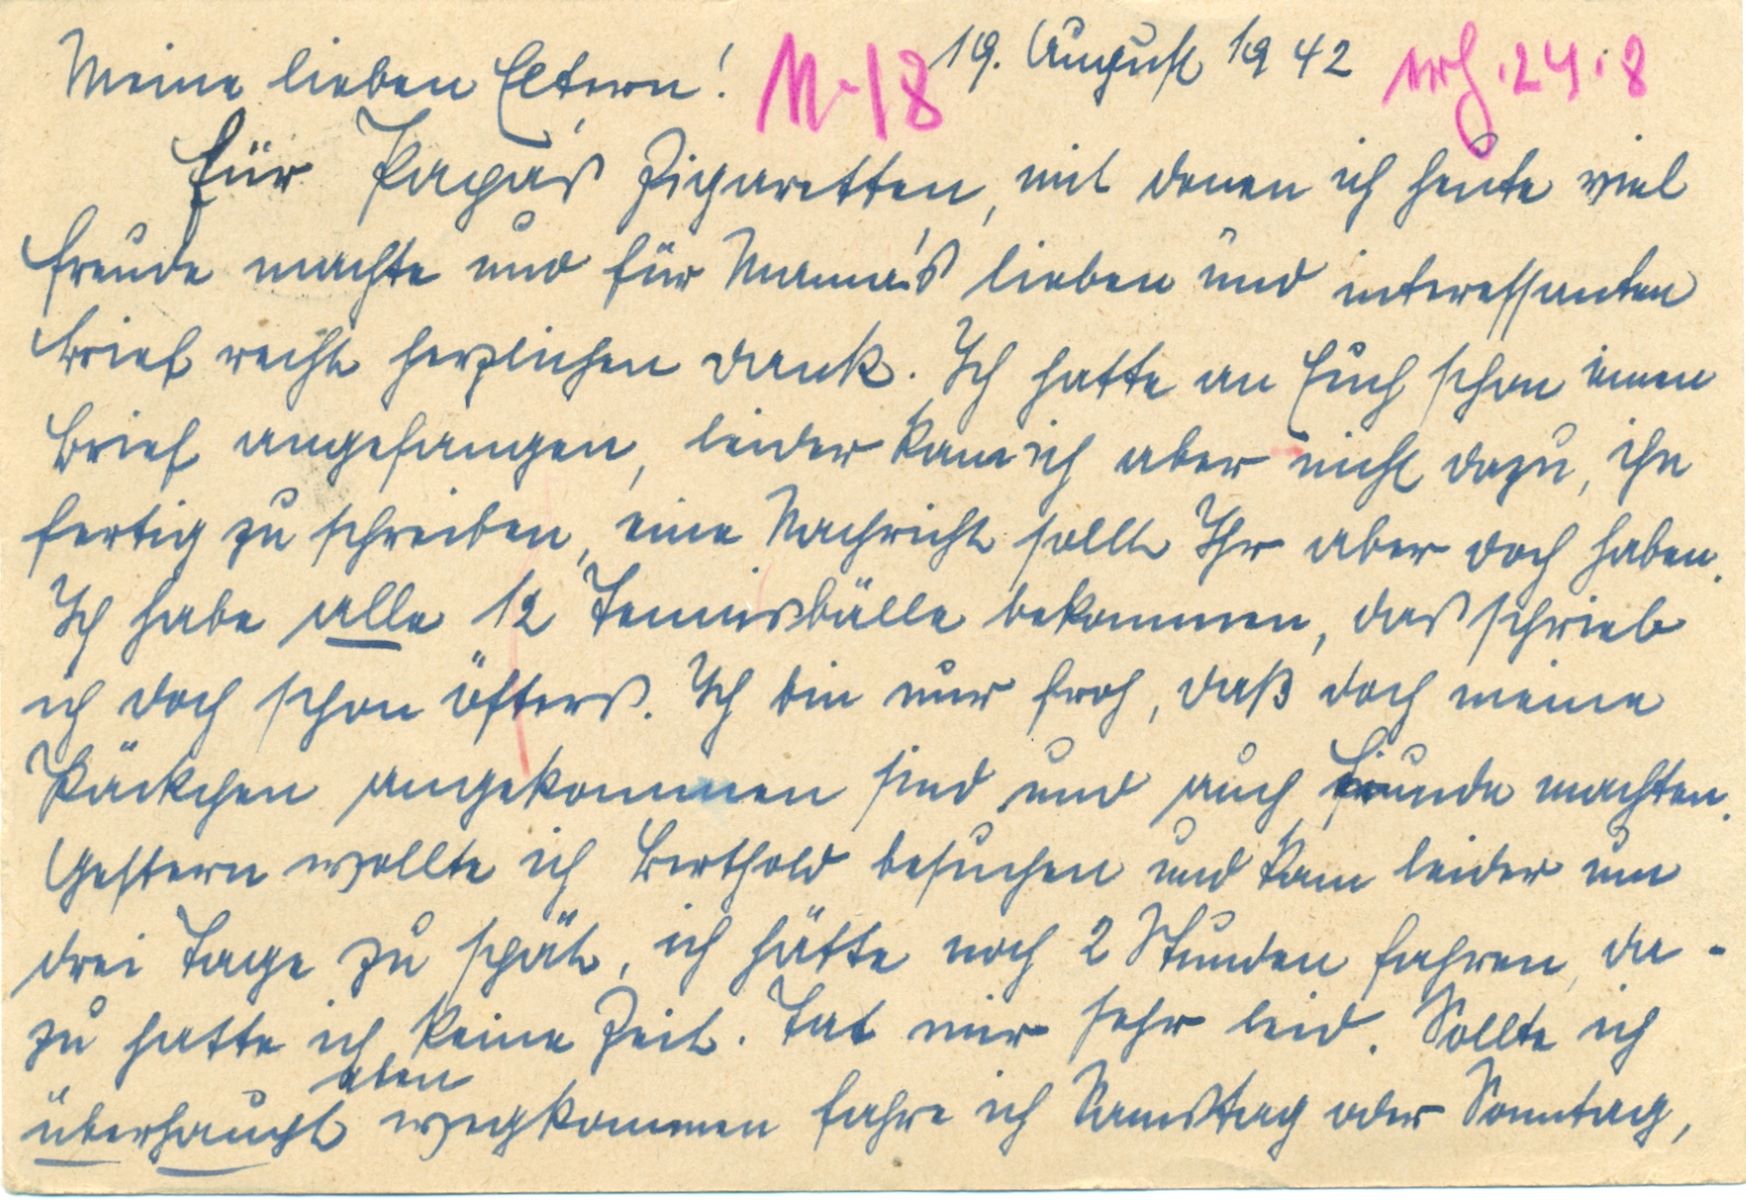 Meine lieben Eltern! N-18 19. August 1942 24.8
Für Papa's Zigaretten, mit denen ich heute viel
Freude machte und für Mama's lieben und interessanten
Brief recht herzlichen Dank. Ich hatte an Euch schon einen
Brief angefangen, leider kam ich aber nicht dazu, ihn
fertig zu schreiben, eine Nachricht sollt Ihr aber doch haben.
Ich habe alle 12 Tennisbälle bekommen, das schrieb
ich doch schon öfters. Ich bin nur froh, daß doch meine
Päckchen angekommen sind und auch Freude machten.
Gestern wollte ich Berthold besuchen und kam leider um
drei Tage zu spät, ich hätte noch 2 Stunden fahren, da-
zu hatte ich keine Zeit. Tat mir sehr leid. Sollte ich
oben
überhaupt wegkommen fahre ich Samstag oder Sonntag,